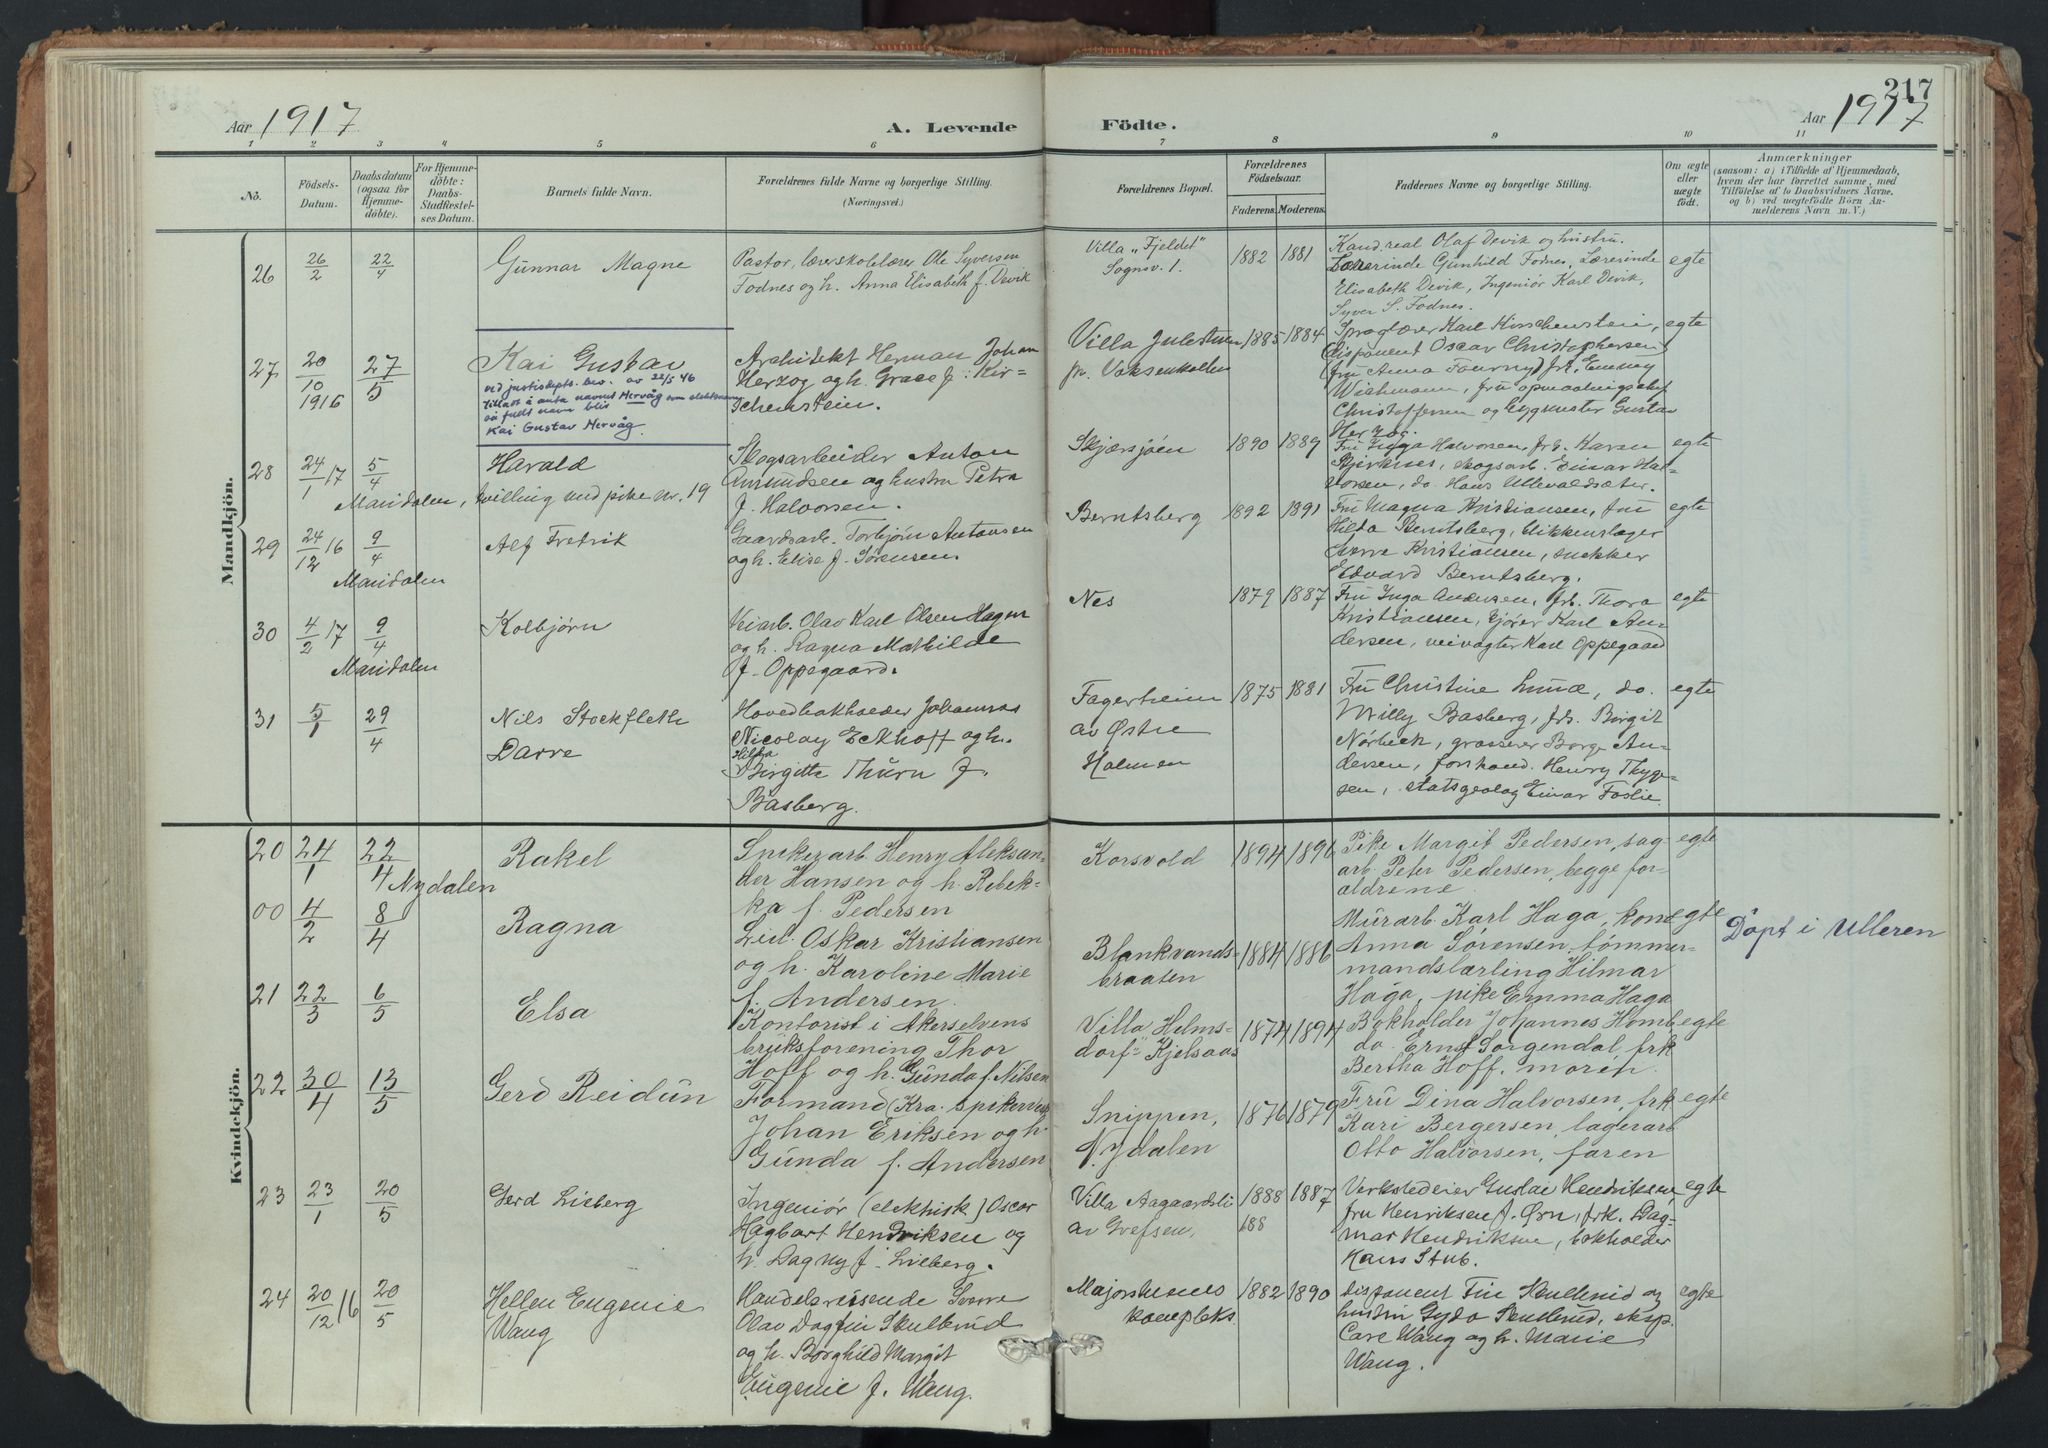 217
Aar 1917
A. Levende
Födte.
Aar 1917
1 2 3 4 5 6 7 8 9 10 11
No.
Födsels-
Datum.
Daabsdatum
(ogsaa for
Hjemme-
döbte).
For Hjemme-
döbte:
Daabs-
Stadfæstel-
ses Datum.
Barnets fulde Navn.
Forældrenes fulde Navne og borgerlige Stilling.
(Næringsvei.)
Forældrenes Bopæl.
Forældrenes
Födselsaar.
Faderens.
Moderens.
Faddernes Navne og borgerlige Stilling.
Om ægte
eller
uægte
født.
Anmærkninger
(saasom: a) i Tilfælde af Hjemmedaab,
hvem der har forrettet samme, med
Tilföielse af to Daabsvidners Navne,
og b) ved uægtefödte Börn An-
melderens Navn m. V.)
Mandkjön.
26 26/2 22/4 Gunnar Magne
Pastor, lærerskolelærer Ole Syversen
Fodnes og h. Anna Elisabeth f. Devik
Villa "Fjeldet"
Sognsv. 1.
1882 1881
Kand. real Olaf Devik og hustru.
Lærerinde Gunhild Fodnes, Lærerinde
Elisabeth Devik, Ingeniör Karl Devik,
Syver S. Fodnes.
egte
27 20/10 1916 27/5 Kai Gustav
ved justisdepts. bev. av 22/5 46
tillatt å anta navnet Mervåg som slektsnavn
så fulde navn blir
Kai Gustav Mervåg.
Architekt Herman Johan
Herzog og h. Grace f. Kir-
schenstein.
Villa
pr. Voksenkollen
1885 1884
Sproglærer Karl Kirschenstein,
disponent Oscar Christophersen
fru Anna Fourny, frk. Emmy
Wichmann, fru opmaalingschef
Christoffersen og bygmester Gustav
Herzog.
egte
28 24/1 17 5/4 Harald
Maridalen, tvilling med pike nr. 19
Skogsarbeider Anton
Amundsen og hustru Petra
f. Halvorsen.
Skjærsjøen
1890 1889
Fru Inga Halvorsen, frk. Karen
Bjirknes, skogsarb. Einar Hal-
vorsen, do. Hans Ullevoldsæter.
egte
29 24/12 16 9/4 Alf Fredrik
Maridalen
Gaardsarb. Torbjørn Antonsen
og h. Elise f. Sørensen.
Berntsberg
1892 1891
Fru Magna Kristiansen, fru
Hilda Berntsberg, blikkenslager
Sverre Kristiansen, snekker
Edvard Berntsberg.
egte
30 4/2 17 9/4 Kolbjørn
Maridalen
Veiarb. Olav Karl Olsen Hagen
og h. Ragna Mathilde
f. Oppegaard.
Nes
1879 1887
Fru Inga Andersen, frk. Thora
Kristiansen, kjører Karl An-
dersen, veivogter Karl Oppegaard
egte
31 5/1 29/4 Nils Stockfleth
Darre
Hovedbokholder Johannes
Nicolay Eckhoff og h.
Hilda
Birgitte Thurn f.
Basberg.
Fagerheim
av Østre
Holmen
1875 1881
Fru Christine Lund, do.
Milly Basberg, frk. Birgit
Nørbech, grosserer Borge An-
dersen, forskand. Henry Thyge-
sen, statsgeolog Einar Foslie
egte
Kvindekjön.
20 24/1 22/4 Rakel
Nydalen
Spikerarb. Henry Aleksan-
der Hansen og h. Rebek-
ka f. Pedersen
Korsvold
1894 1896
Pike Margit Pedersen, sag-
arb. Peter Pedersen, begge for-
ældrene
egte
00 4/2 8/4 Ragna
Leil. Oskar Kristiansen
og h. Karoline Marie
f. Andersen.
Blankvands-
braaten
1884 1886
Murarb. Karl Haga, kone
Anna Sørensen, tømmer-
mandslærling Hilmar
Haga, pike Emma Haga
egte
Döpt i Ulleren
21 22/3 6/5 Elsa
Kontorist i Akerselvens
bruksforening Thor
Hoff og h. Gunda f. Nilsen
Villa Helms-
dorf" Kjelsaas
1874 1894
Bokholder Johannes Homb
do. Ernst Sørgendal, frk
Bertha Hoff, moren.
egte
22 30/4 13/5 Gerd Reidun
Formand (Kra. spikerverk
Johan Eriksen og h.
Gunda f. Andersen
Snippen,
Nydalen
1876 1879
Fru Dina Halvorsen, frk
Kari Bergersen, lagerarb
Otto Halvorsen, faren
egte
23 23/1 20/5 Gerd Lieberg
Ingeniör (elektrisk) Oscar
Hagbart Hendriksen og
h. Dagny f. Lieberg.
Villa Aagaardsli
av Grefsen,
1888 1887
188
Verkstedeier Gustav Hendriksen,
fru Henriksen f. Ørn, frk. Dag-
mar Hendriksen, bokholder
Hans Stub.
egte
24 20/12 16 20/5 Hellen Eugenie
Wang
Handelsreisende Sverre
Olav Dagfin Skullerud
og h. Borghild Margit
Eugenie f. Wang.
Majorstuens
kompleks.
1882 1890
Disponent Fin Skullerud og
hustru Gyda Skullerud, eksp.
Carl Wang og h. Marie
Wang.
egte